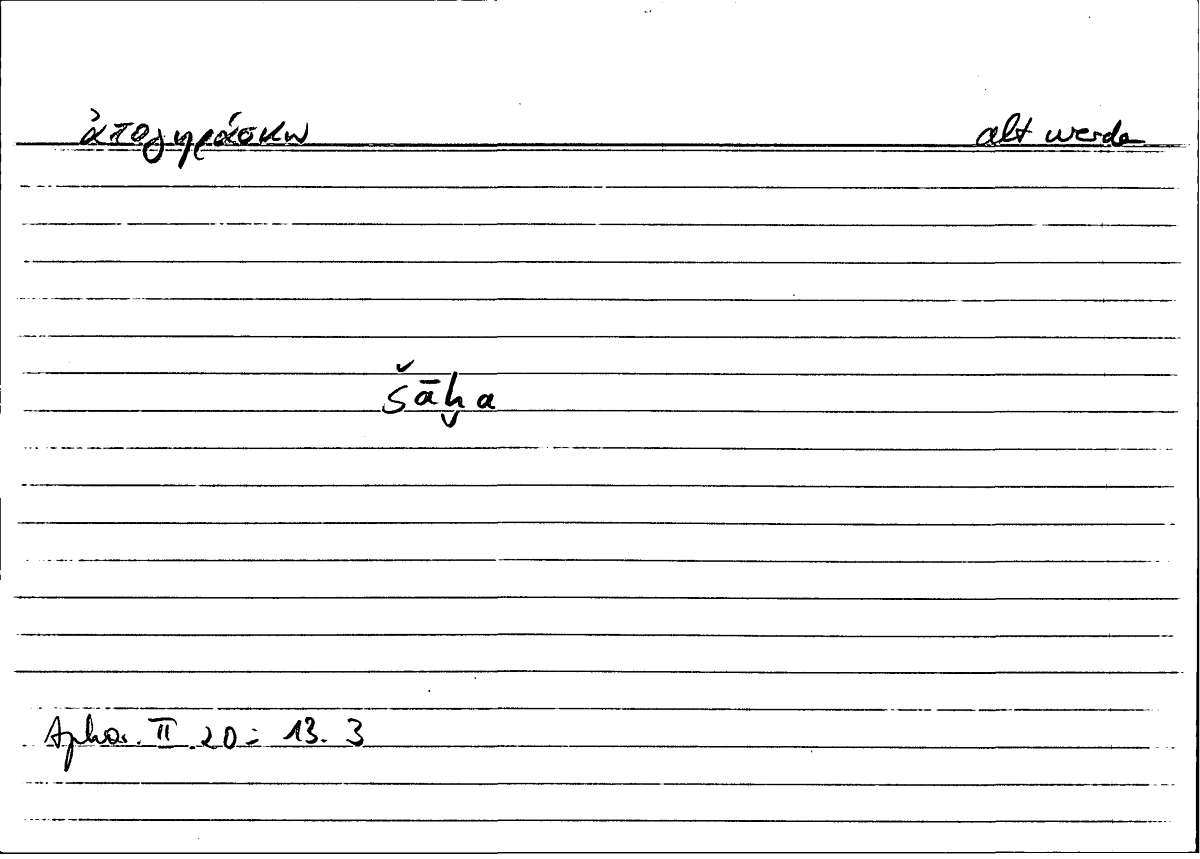 ἀπογηράσκω alt werde
šāḫa
Aphor. II 20 = 13. 3